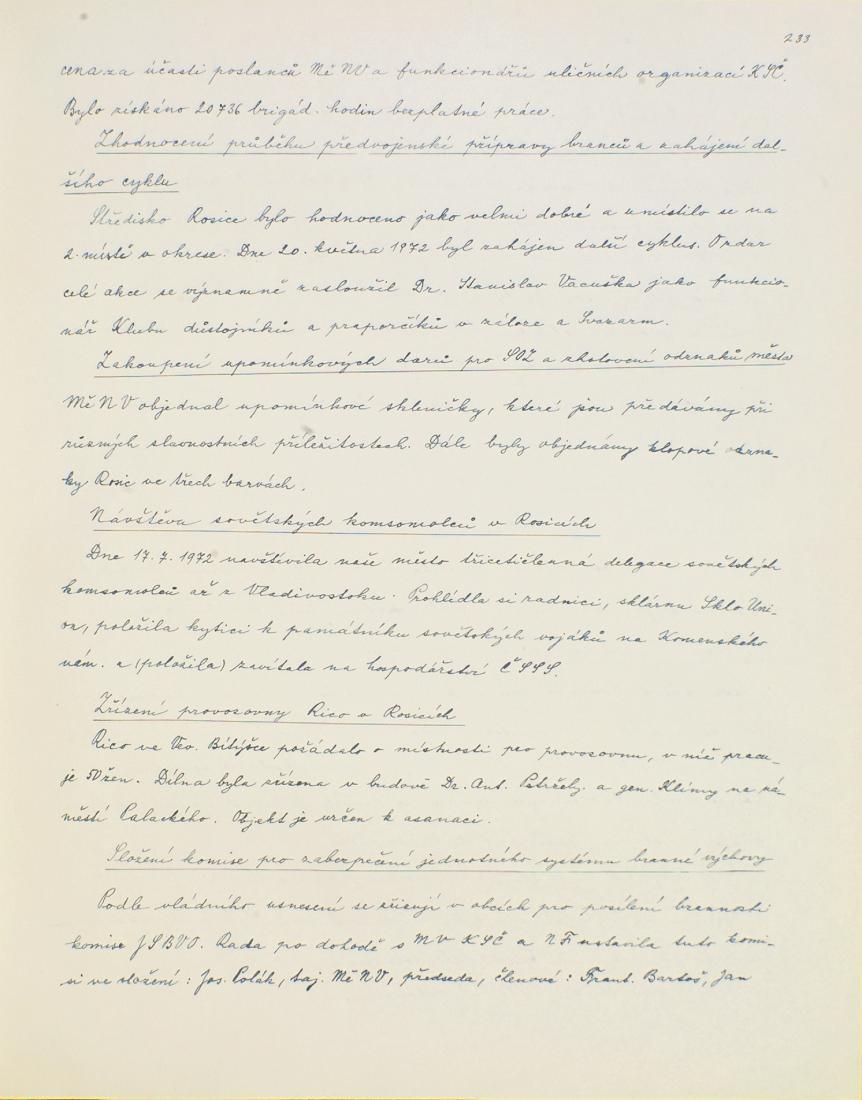 233
cena za účasti poslanců Mě NV a funkcionářů uličních organizací KSČ.
Bylo získáno 20 736 brigád. hodin bezplatné práce.
Zhodnocení průběhu předvojenské přípravy branců a zahájení dal-
šího cyklu
Středisko Rosice bylo hodnoceno jako velmi dobré a umístilo se na
2. místě v okrese. Dne 20. května 1972 byl zahájen další cyklus. O zdar
celé akce se významně zasloužil Dr. Stanislav Vacuška jako funkcio-
nář Klubu důstojníků a praporčíků v záloze a Svazarm.
Zakoupení upomínkových darů pro SOZ a zhotovení odznaků města
Mě NV objednal upomínkové skleničky, které jsou předávány při
různých slavnostních příležitostech. Dále byly objednány klopové odzna-
ky Rosic ve třech barvách.
Návštěva sovětských komsomolců v Rosicích
Dne 17. 7. 1972 navštívila naše město třicetičlenná delegace sovětských
komsomolců až z Vladivostoku. Prohlídla si radnici, sklárnu Sklo Uni-
on, položila kytici k památníku sovětských vojáků na Komenského
nám. a (položila) zavítala na hospodářství ČSSS.
Zřízení provozovny Rico v Rosicích
Rico ve Vev. Bítýšce požádalo o místnosti pro provozovnu, v níž pracu-
je 50 žen. Dílna byla zřízena v budově Dr. Ant. Petržely a gen. Klímy na ná-
městí Palackého. Objekt je určen k asanaci.
Složení komise pro zabezpečení jednotného systému branné výchovy
Podle vládního usnesení se zřizují v obcích pro posílení brannosti
komise JSBVO. Rada po dohodě s MV KSČ a NF ustavila tuto komi-
si ve složení: Jos. Polák, taj. Mě NV, předseda, členové: Frant. Bartoš, Jan